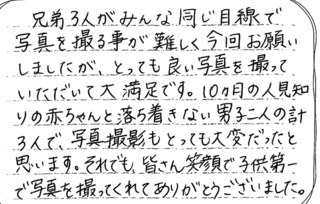 兄弟3人がみんな同じ目線で
写真を撮る事が難しく今回お願い
しましたが、とっても良い写真を撮って
いただいて大満足です。10ヵ月の人見知
りの赤ちゃんと落ち着きない男子二人の計
3人で、写真撮影もとっても大変だったと
思います。それでも、皆さん笑顔で子供第一
で写真を撮ってくれてありがとうございました。